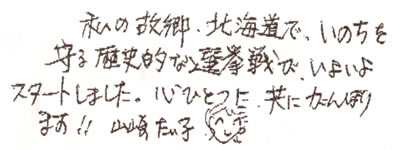 私の故郷、北海道で、いのちを
守る歴史的な選挙戦が、いよいよ
スタートしました。心ひとつに、共にがんばり
ます!! 山崎たい子